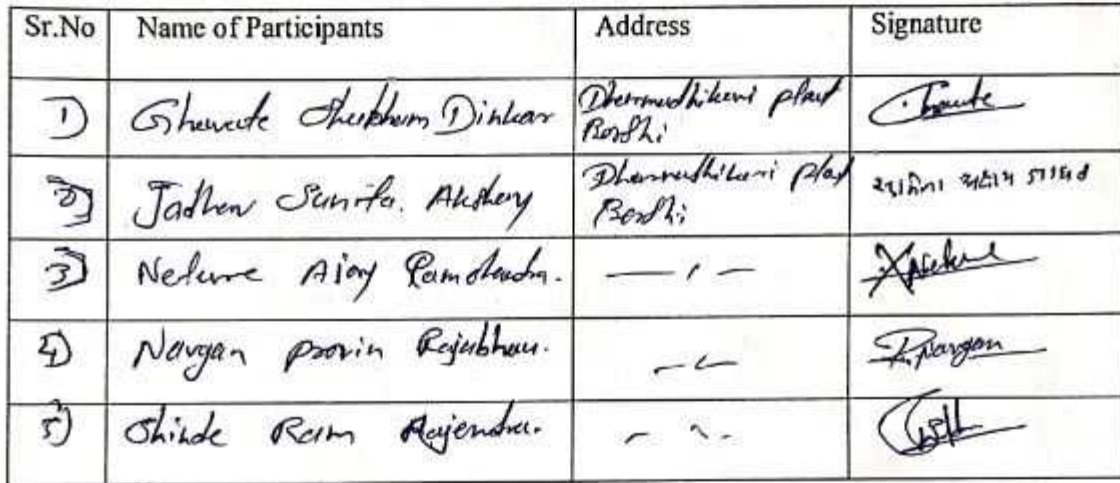 Sr.No Name of Participants Address Signature
1) Ghavate Shubham Dinkar Dharmadhikari plot
Barshi
2) Jadhav Sunita. Akshay Dharmadhikari plot
Barshi
3) Nekure Ajay Ramchandra. — ,, — Nekure
4) Navgan pravin Rajubhau. P. Navgan
5) Shinde Ram Rajendra.